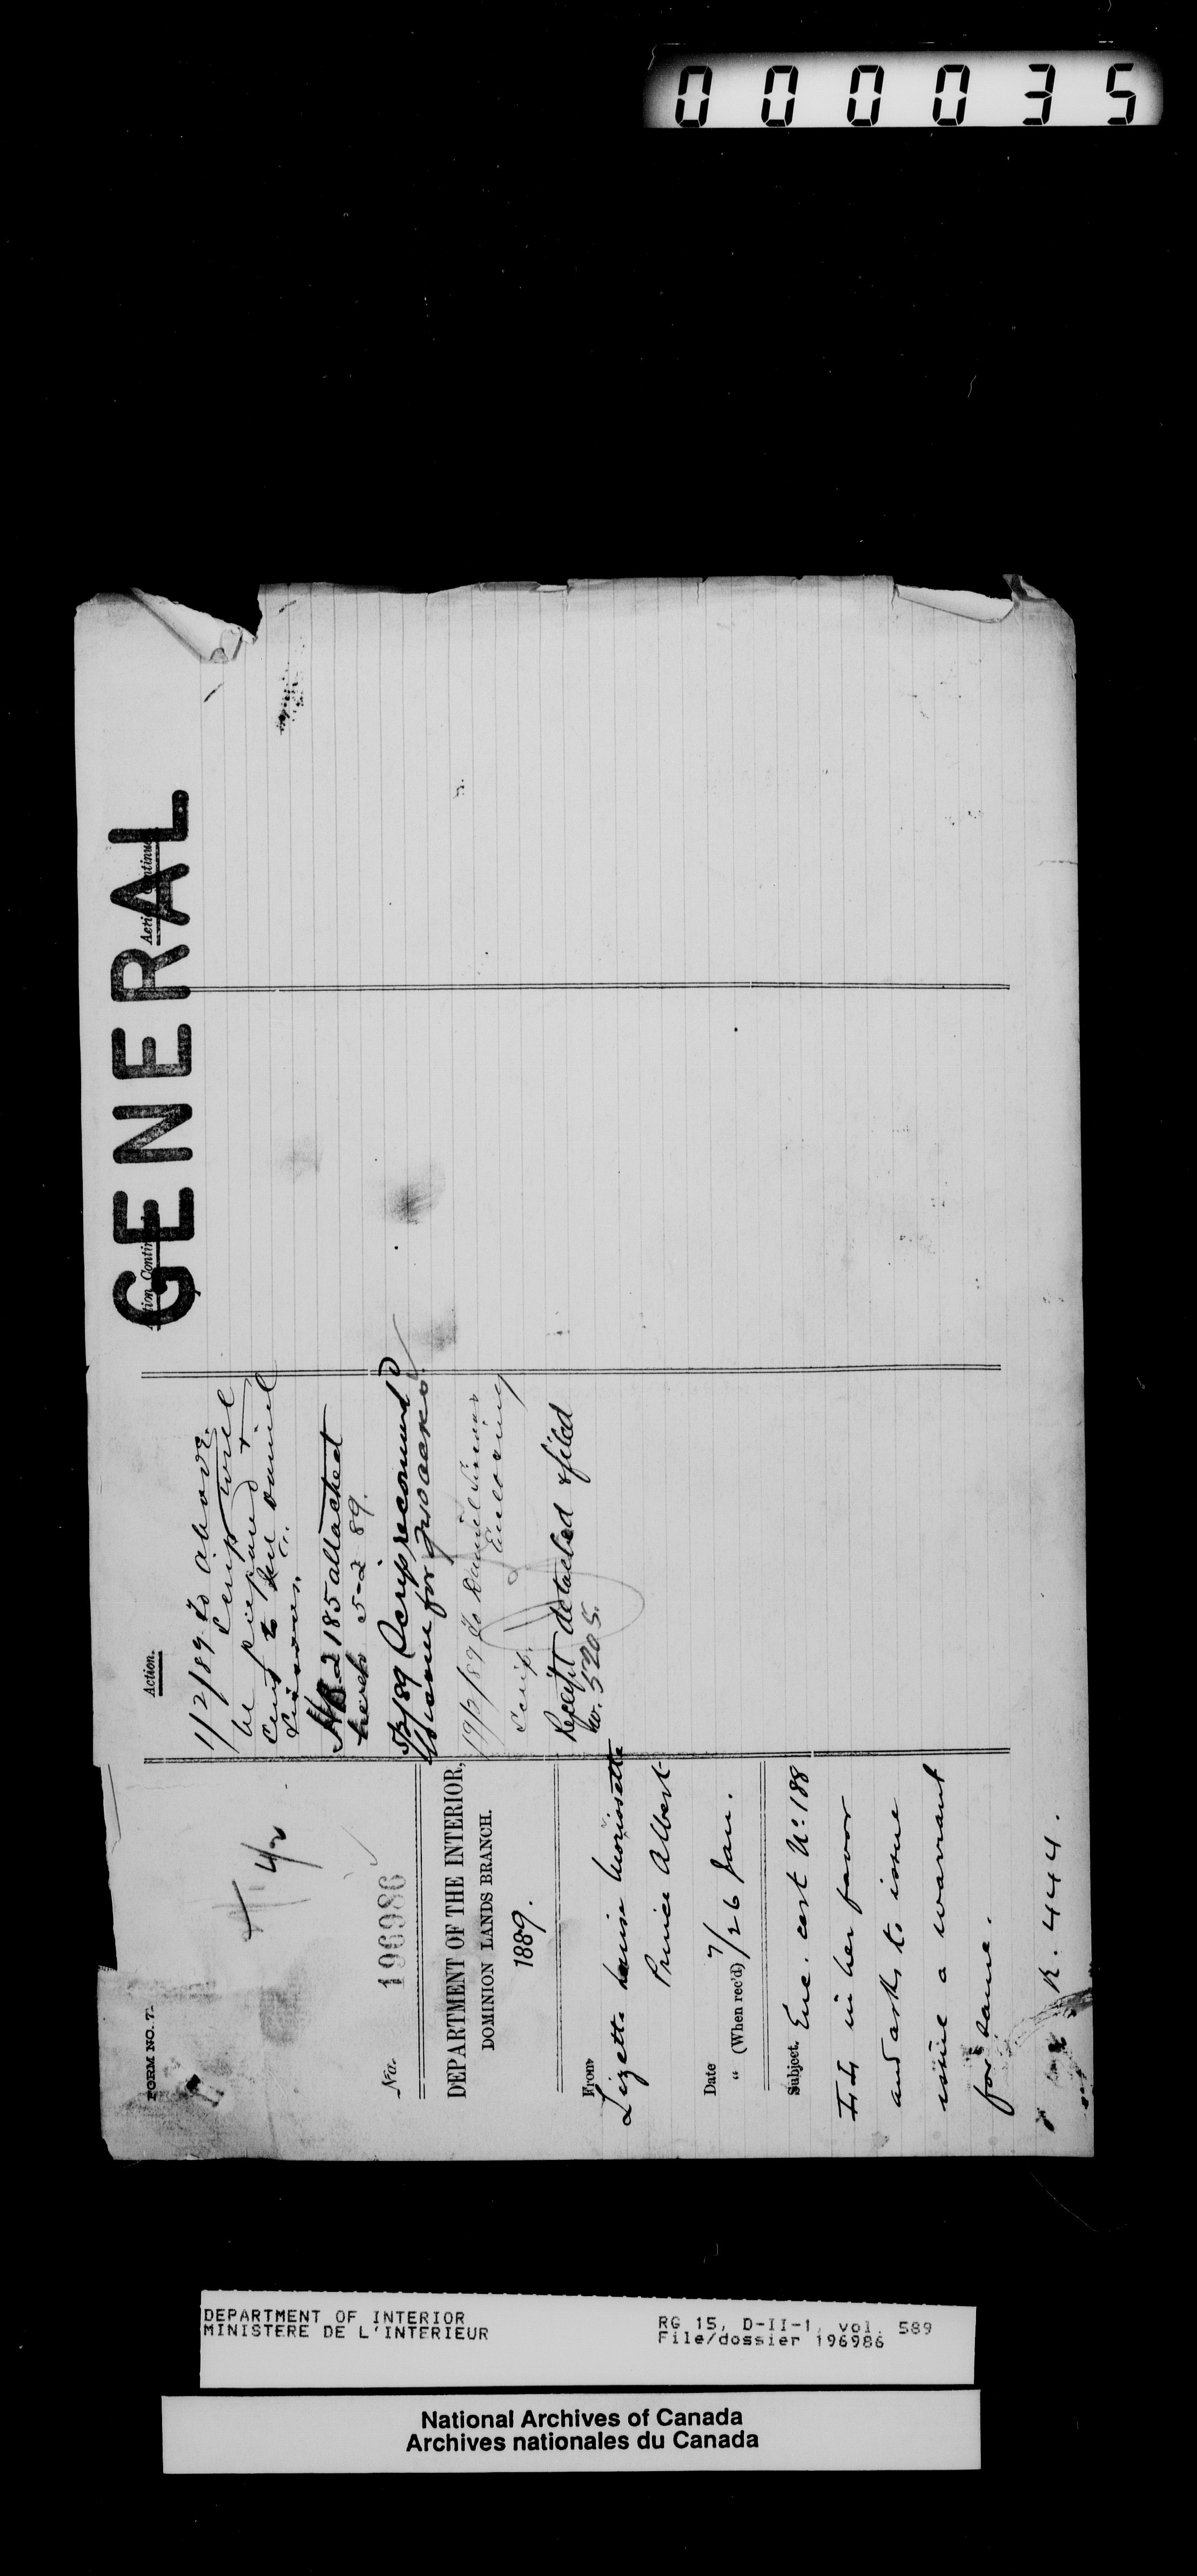 000035
GENERAL
FORM NO. 7.
No. 196986
DEPARTMENT OF THE INTERIOR,
DOMINION LANDS BRANCH.
1889.
From
Lizette Louise Morissette
Prince Albert
Date 7
" (When rec'd) 26 Jan.
Subject. Enc. cert No. 188
in her favor
and asks to issue
issue a warrant
for same.
R. 444.
Action.
1/2/89 To above.
Scrip will
be prepared &
sent to Daniel
H B 2185 attached
hereto 5-2-89.
5/2/89 Scrip recommend
to issue for 240 acres
19/2/89 To Daniel
Enclosing
Scrip.
Receipt detached & filed
no. 5905.
Action Continued
Action Continued
DEPARTMENT OF INTERIOR
MINISTERE DE L'INTERIEUR
RG 15, D-II-1, vol. 589
File/dossier 196986
National Archives of Canada
Archives nationales du Canada